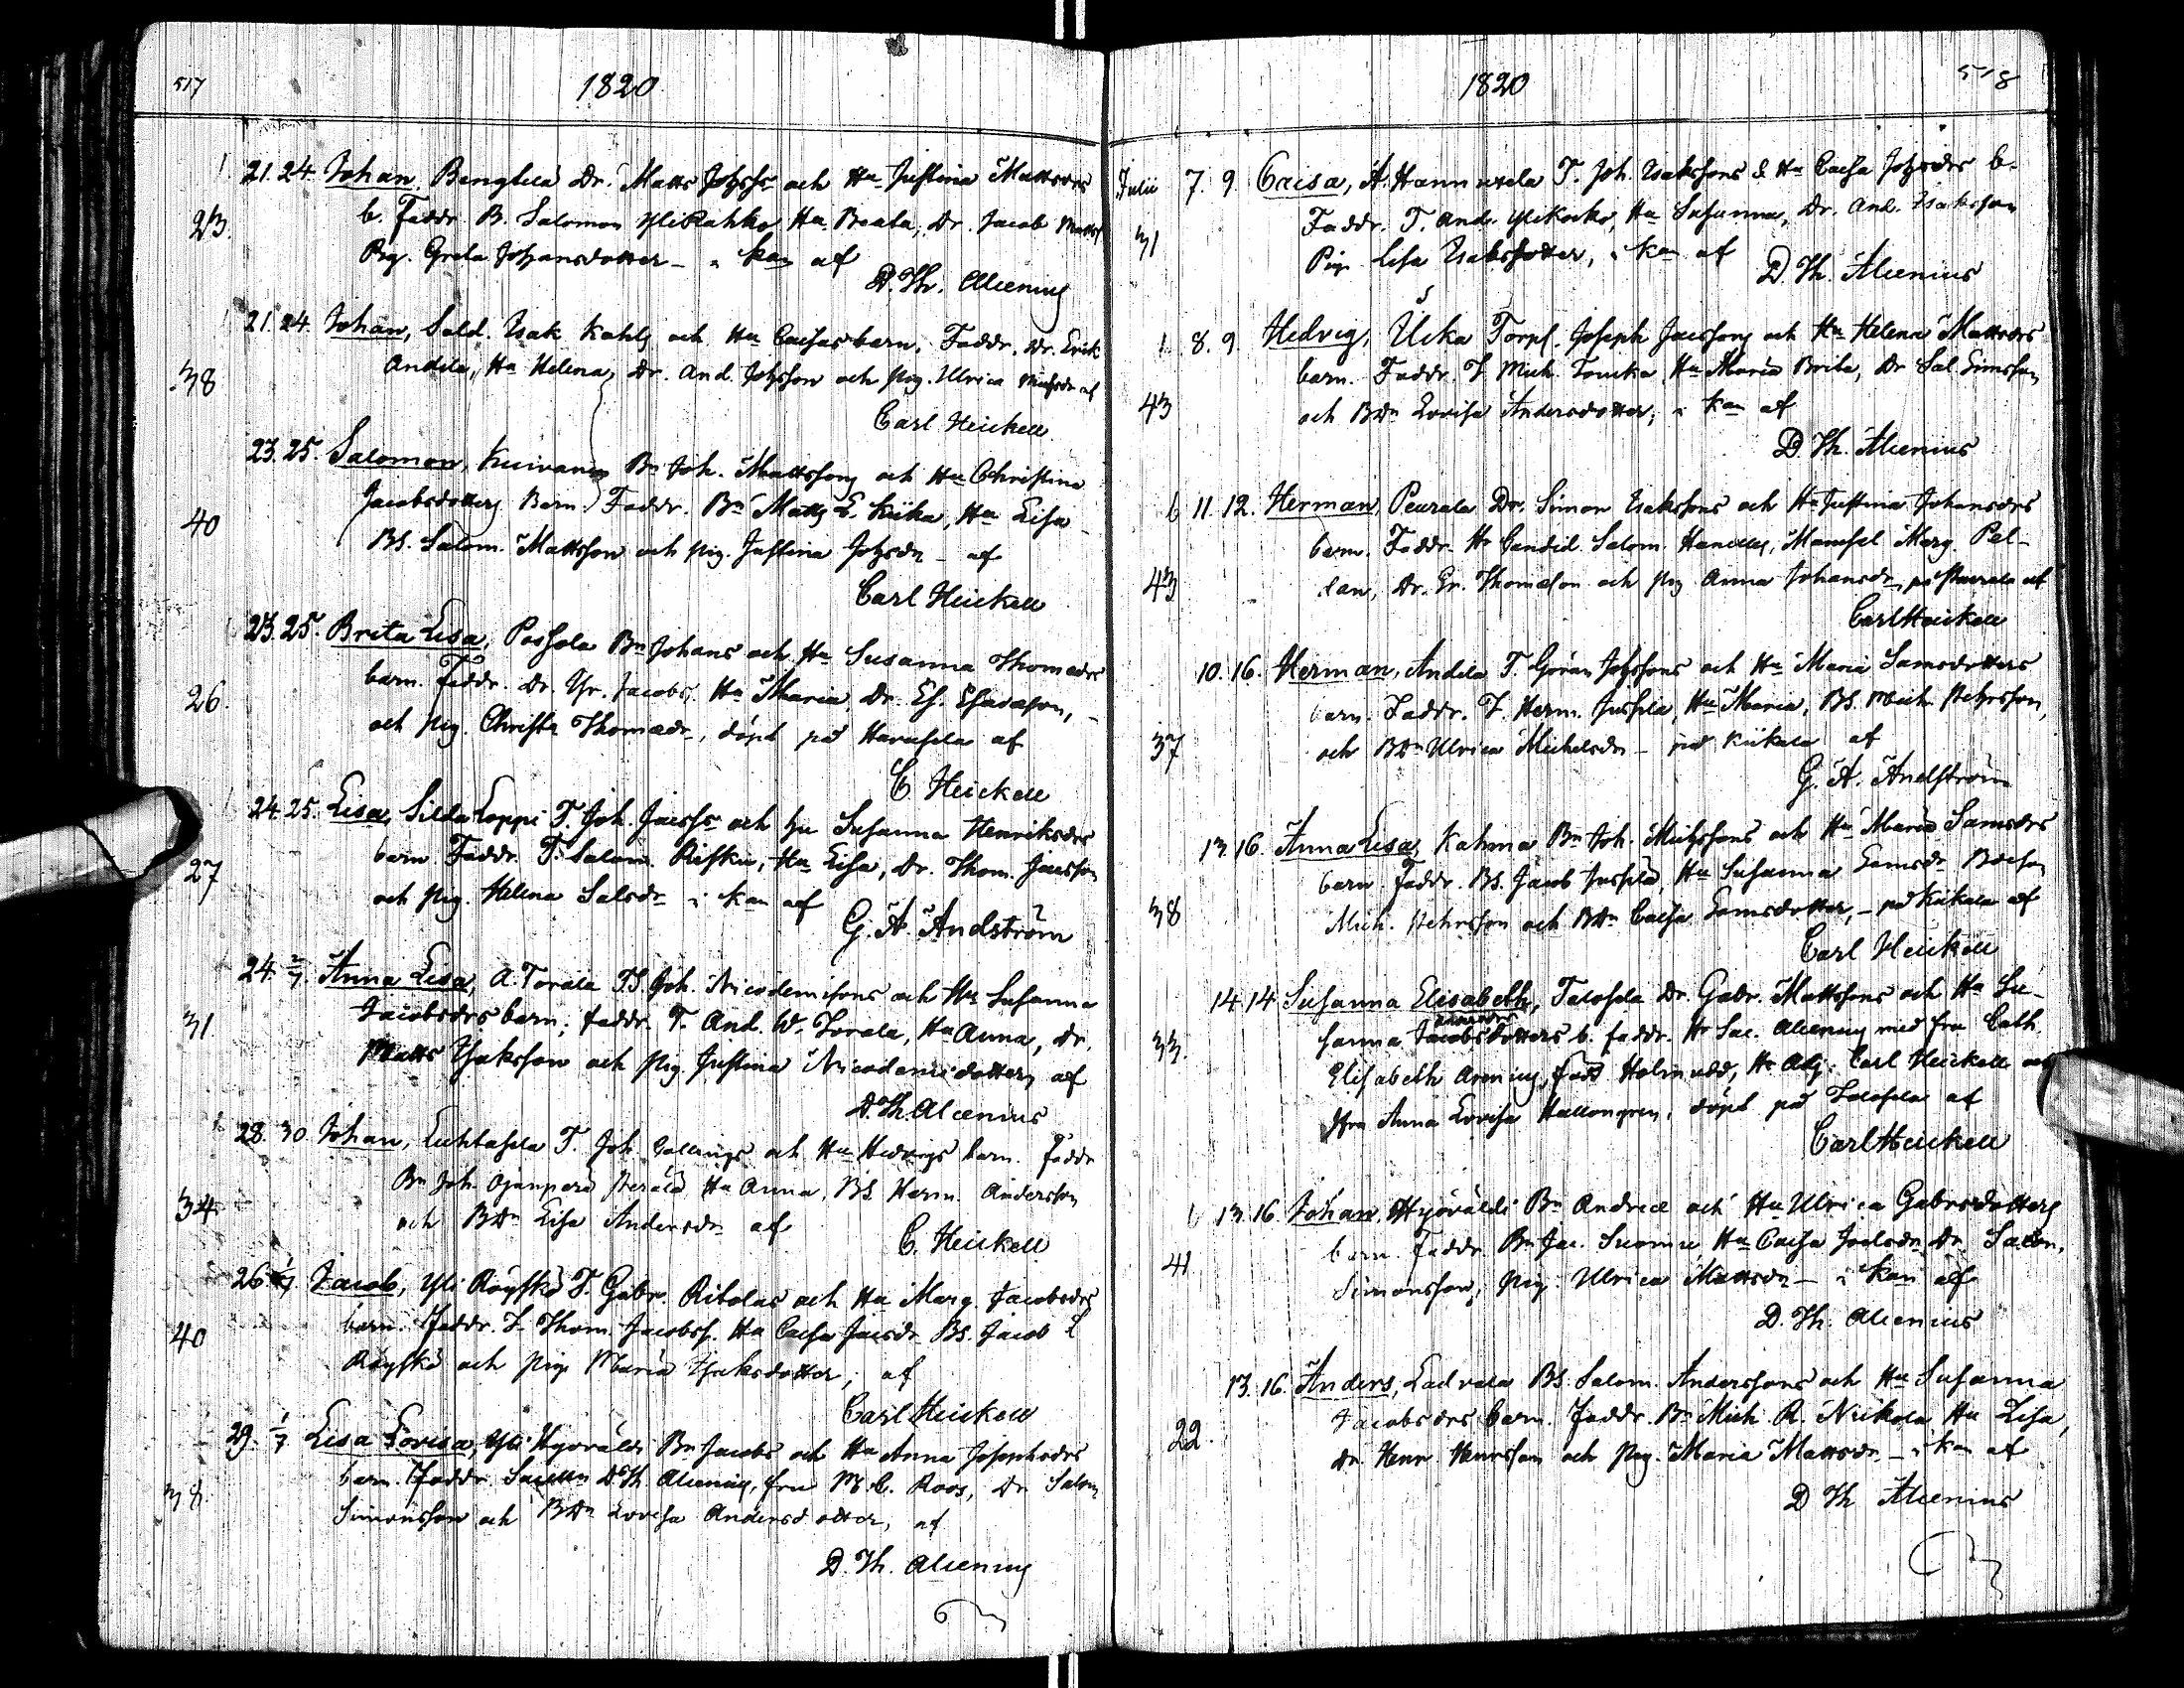 517
1820
21. 24. Johan, Bengtila Dr. Matts Johss och Hu Justina Mattsdrs
23. b. Faddr. B. Salomon YliRahko, Hu Beata, Dr. Jacob Matts
Pig. Greta Johansdotter – i kan af
D. Th. Alcenius
21. 24. Johan, Sold. Isak Kahls och Hu Caisas barn. Faddr. Dr. Erik
38 Andila, Hu Helena, Dr. And. Johsson och pig. Ulrica af
Carl Heickell
23. 25. Salomon, Bn Joh. Mattssons och Hu Christina
40 Jacobsdotters Barn. Faddr. Bn Matts E. Kiika, Hu Lisa
BS. Salom. Mattsson och pig. Justina Johsdr – af
Carl Heickell
23. 25. Brita Lisa, Passola Bn Johans och Hu Susanna Thomædrs
26. barn. Faddr. Dr. Gr. Jacobs, Hu Maria, Dr. Es. Esaiæson,
och pig. Christa Thomædr, döpt på af
C. Heickell
24. 25. Lisa, Silda Loppi T. Joh. Jacss och hu Susanna Henriksdrs
27 barn. Faddr. T. Salom. Riska, Hu Lisa, Dr. Thom. Jacsson
och pig. Helena Salsdr i kan af
G. A. Andström
24. 2/7. Anna Lisa, A. Torala TS Joh. Nicodemisons och Hu Susanna
31. Jacobsdrs barn; faddr. T. And. W. Torala, Hu Anna, Dr.
Matts Isaksson och pig. Justina Nicodemidotter, af
D. Th. Alcenius
28. 30. Johan, T. Joh. och Hu Hedvigs barn. faddr
34 Bn Joh. Ojanperä Herala Hu Anna, BS. Herm. Andersson
och BDr Lisa Andersdr af
C. Heickell
26 1/7. Jacob, Yli Röyskö T. Gabr. Ritolas och Hu Marg. Jacobsdrs
40 barn. Faddr. T. Thom. Jacobss. Hu Caisa Jacsdr BS. Jacob
Röyskö och pig. Maria Isaksdotter, af
Carl Heickell
29. 1/7 Lisa Lovisa, Yli Hyöväldi Bn Jacobs och Hu Anna Josephsdrs
38. barn. Faddr. D Th. Alcenius, fru M. C. Roos, Dr Salom
Simonsson och BDr Lovisa Andersdotter, af
D. Th. Alcenius
1820
518
Julii 7. 9. Caisa, A. Hannuxela T. Joh. Isakssons & Hu Caisa Johsdrs b.
31 Faddr. T. And. Ylikorko, Hu Susanna, Dr. And. Isaksson
Pig. Lisa Isaksdotter, i kan af
D. Th. Alcenius
8. 9. Hedvig, Ucka Torp. Joseph Jacssons och Hu Helena Mattsdrs
43 barn. Faddr. T. Mich. Touka, Hu Maria Brita, Dr Sal. Simsson
och BDr Lovisa Andersdotter, i kan af
D. Th. Alcenius
11. 12. Herman, Peurala Dr. Simon Isakssons och Hu Justina Johansdrs
43 barn. Faddr. Hr Candid. Salom. Hanelles, Mamsel Marg. Pel-
dan, Dr. Er. Thomæson och pig. Anna Johansdr, på Peurala af
Carl Heickell
10. 16. Herman, Andila T. Göran Johssons och Hu Maria Samsdotters
37 barn. Faddr. T. Herm. Jussila, Hu Maria, BS. Mich. Pehrsson,
och BDr Ulrica Michelsdr – på Kiikala af
G. A. Andström
13. 16. Anna Lisa, Kahma Bn Joh. Michssons och Hu Maria Samsdrs
38 barn. Faddr. BS. Jacob Jussila, Hu Susanna Samsdr
Mich. Pehrsson och BDr Caisa Samsdotter, – på Kiikala af
Carl Heickell
14. 14 Susanna Elisabeth, Dr. Gabr. Mattssons och Hu Su-
33. sanna Jacobsdotters b. faddr. Hr Sac. Alcenius med fru Cath.
Elisabeth född Holmudd, Hr Adj. Carl Heickell och
fru Anna Lovisa döpt på af
Carl Heickell
13. 16. Johan, Hyöväldi Bn Andreæ och Hu Ulrica Gabrsdotters
41. barn. Faddr. Bn Jac. Hu Caisa Joelsdr, Dr Salom.
Simonsson, pig. Ulrica Mattsdr – i kan af
D. Th. Alcenius
13. 16. Anders, BS. Salom. Anderssons och Hu Susanna
22. Jacobsdrs barn. Faddr. Bn Mich. R. Nikola Hu Lisa,
Dr Henr. Henrsson och pig. Maria Mattsdr – i kan af
D Th Alcenius